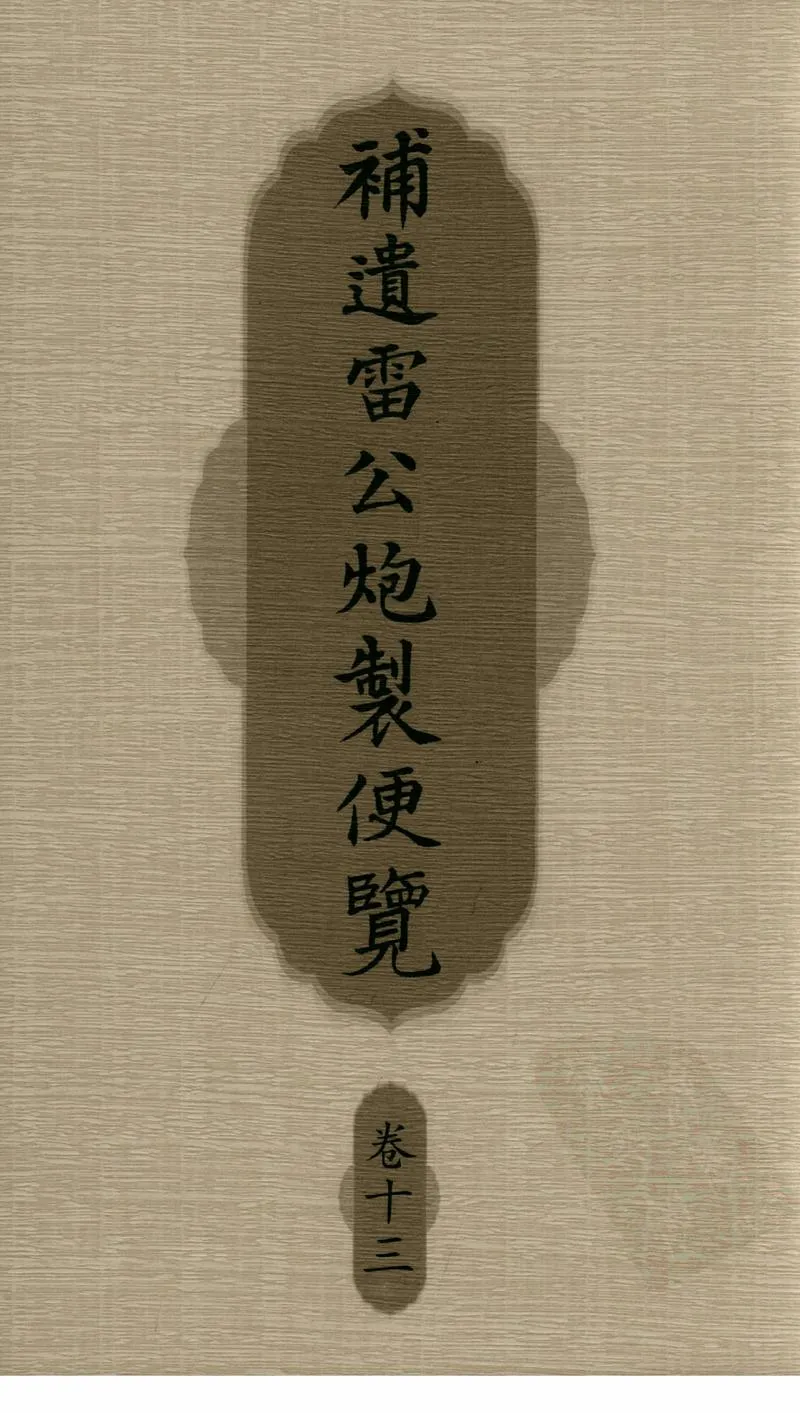 補遺雷公炮製便覽
卷十三